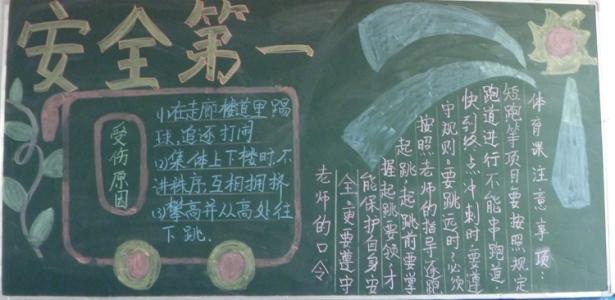 安全第一
受伤原因
(1)在走廊楼道里踢
球,追逐打闹
(2)集体上下楼时,不
讲秩序,互相拥挤
(3)攀高并从高处往
下跳.
体育课注意事项:
短跑等项目要按照规定
跑道进行,不能串跑道
快到终点冲刺时要遵
守规则,要跳远时,必须
按照老师的指导途距
起跳,起跳前要学
握起跳要领,才
能保护自身安
全,更要遵守
老师的口令